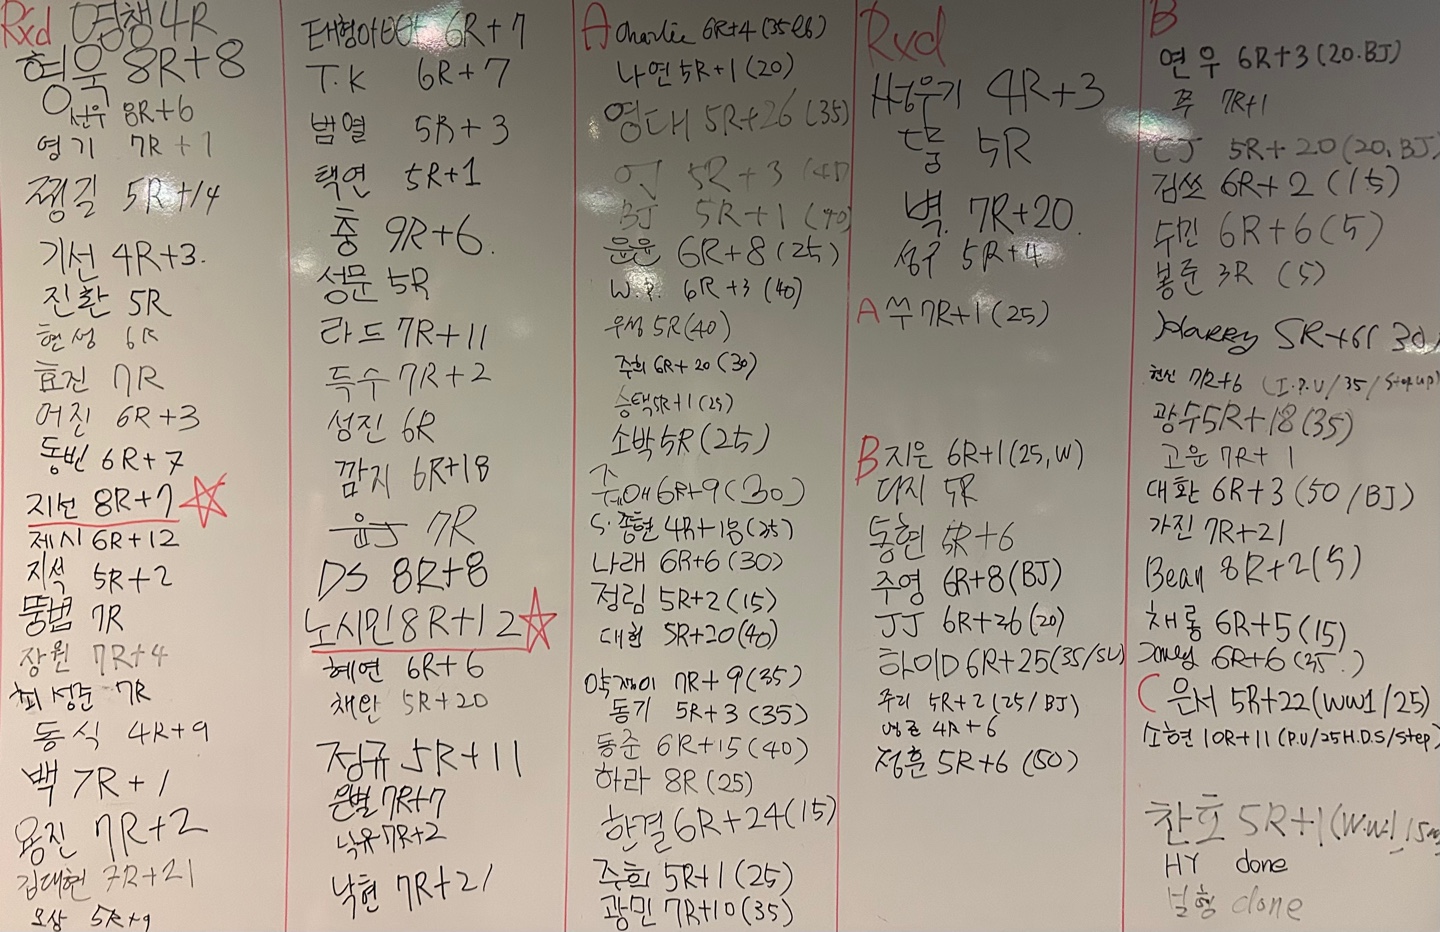 Rxd 영챈 4R
형욱 8R+8
선우 8R+6
영기 7R+1
찡길 5R+14
기선 4R+3.
진환 5R
현성 6R
효진 7R
어진 6R+3
동빈 6R+7
지선 8R+7
제시 6R+12
지석 5R+2
뚱범 7R
장원 7R+4
최성준 7R
동식 4R+9
백 7R+1
용진 7R+2
김대현 7R+21
오상 5R+9
태형아빠 6R+7
T.K 6R+7
범열 5R+3
택연 5R+1
충 9R+6.
성문 5R
라드 7R+11
득수 7R+2
성진 6R
깜지 6R+18
윤J 7R
DS 8R+8
노시민 8R+12
혜연 6R+6
채안 5R+20
정규 5R+11
은별 7R+7
낙유 7R+2
낙현 7R+21
A Charlie 6R+4 (35lb)
나연 5R+1 (20)
영대 5R+26 (35)
5R+3 (40)
BJ 5R+1 (40)
윤윤 6R+8 (25)
W.P. 6R+3 (40)
우성 5R (40)
주희 6R+20 (30)
승택 5R+1 (25)
소박 5R (25)
6R+9 (30)
S.종현 4R+18 (35)
나래 6R+6 (30)
정림 5R+2 (15)
대협 5R+20 (40)
약쟁이 7R+9 (35)
동기 5R+3 (35)
동준 6R+15 (40)
하라 8R (25)
한결 6R+24 (15)
주희 5R+1 (25)
광민 7R+10 (35)
Rxd
4R+3
5R
벽. 7R+20.
성구 5R+4
A 쑤 7R+1 (25)
B 지은 6R+1 (25, W)
다시 5R
동현 5R+6
주영 6R+8 (BJ)
JJ 6R+26 (20)
하이D 6R+25 (35/SU)
주리 5R+2 (25/BJ)
4R+6
정훈 5R+6 (50)
B
연우 6R+3 (20.BJ)
쭈 7R+1
CJ 5R+20 (20, BJ)
김쓰 6R+2 (15)
수민 6R+6 (5)
봉준 3R (5)
Harry 5R+6 (30)
현신 7R+6 (I.P.U/35/Step up)
광수 5R+18 (35)
고윤 7R+1
대환 6R+3 (50/BJ)
가진 7R+21
Bean 8R+2 (5)
채롱 6R+5 (15)
6R+6 (35.)
C 은서 5R+22 (WW1/25)
소현 10R+11 (P.U/25H.D.S/Step)
찬호 5R+1 (W.W.1
HY done
done